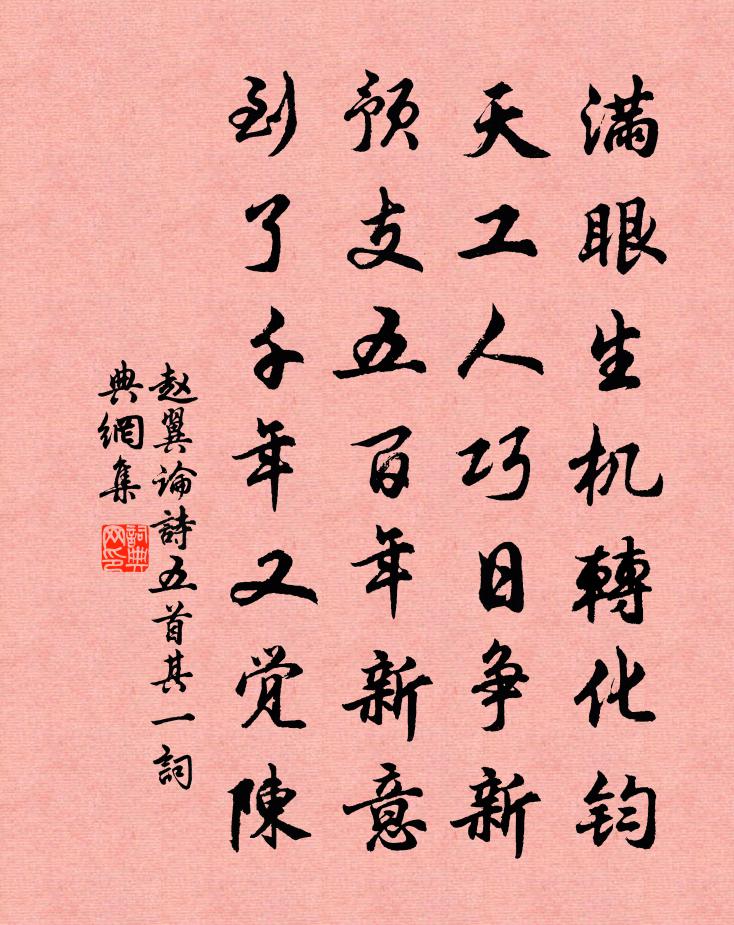 满眼生机轉化钧
天工人巧日争新
预支五百年新意
到了千年又觉陳
赵翼論詩五首其一詞
典網集
詞典
网印